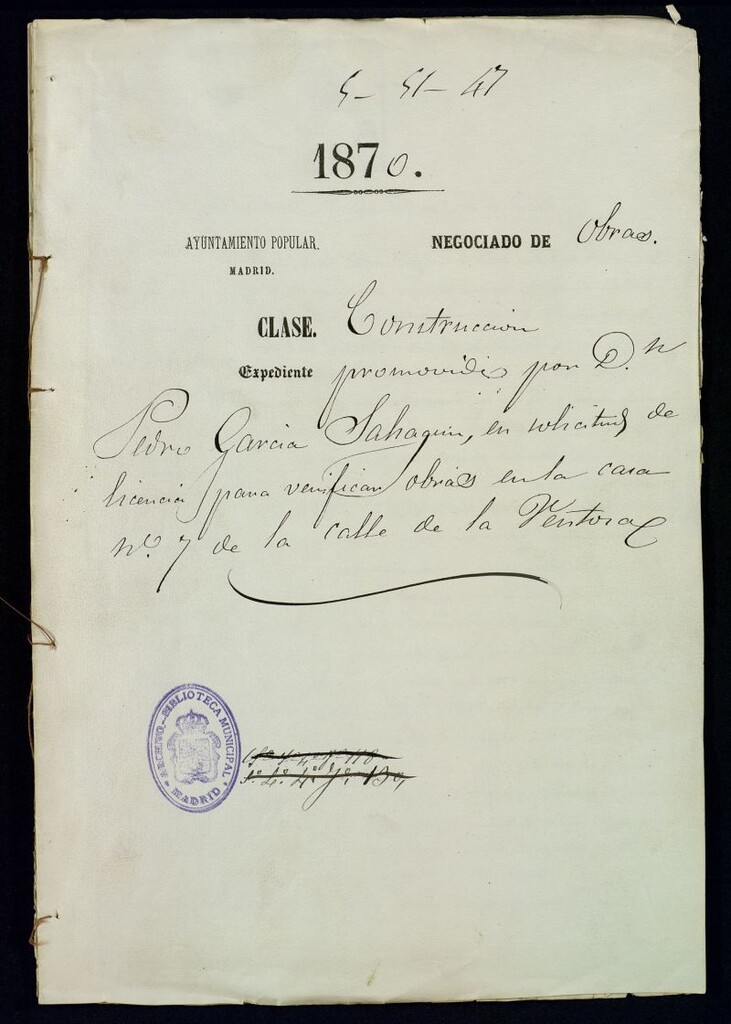 5- 51- 47
1870.
AYUNTAMIENTO POPULAR.
MADRID.
NEGOCIADO DE Obras.
CLASE. Construccion
Expediente promovido por Dn
Pedro Garcia Sahagun, en solicitud de
licencia para verificar obras en la casa
no. 7 de la calle de la Ventosa
ARCHIVO-BIBLIOTECA MUNICIPAL
MADRID